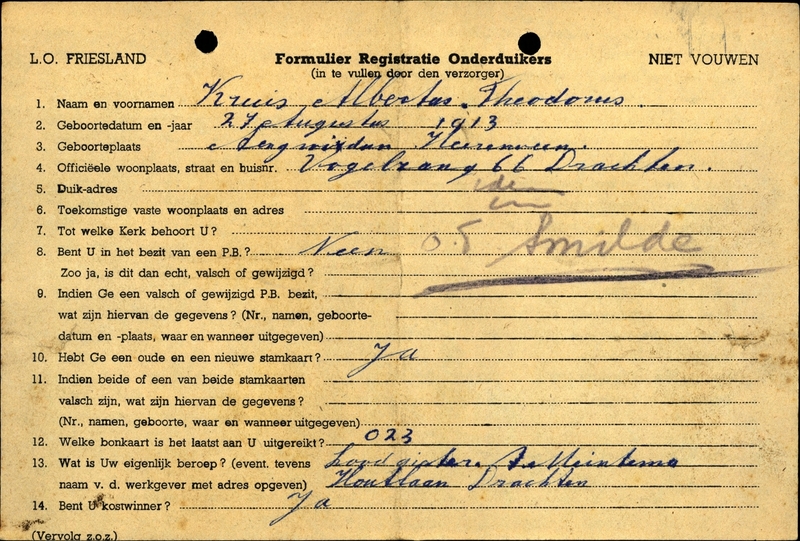 L.O. FRIESLAND Formulier Registratie Onderduikers NIET VOUWEN
(in te vullen door den verzorger)
1. Naam en voornamen Kruis Albertus Theodorus.
2. Geboortedatum en -jaar 27 Augustus 1913
3. Geboorteplaats Heerenveen.
4. Officiëele woonplaats, straat en huisnr. Vogelzang 66 Drachten.
5. Duik-adres idem
6. Toekomstige vaste woonplaats en adres
7. Tot welke Kerk behoort U?
8. Bent U in het bezit van een P.B.? Neen Smilde
Zoo ja, is dit dan echt, valsch of gewijzigd?
9. Indien Ge een valsch of gewijzigd P.B. bezit,
wat zijn hiervan de gegevens? (Nr., namen, geboorte-
datum en -plaats, waar en wanneer uitgegeven)
10. Hebt Ge een oude en een nieuwe stamkaart? Ja
11. Indien beide of een van beide stamkaarten
valsch zijn, wat zijn hiervan de gegevens?
(Nr., namen, geboorte, waar en wanneer uitgegeven)
12. Welke bonkaart is het laatst aan U uitgereikt? 023
13. Wat is Uw eigenlijk beroep? (event. tevens loodgieter. Meintema
naam v. d. werkgever met adres opgeven) Houtlaan Drachten
14. Bent U kostwinner? Ja
(Vervolg z.o.z.)